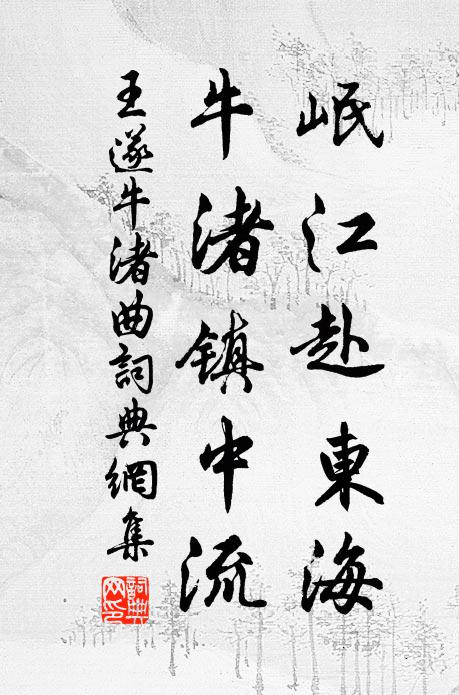 岷江赴東海
牛渚鎮中流
王遂牛渚曲詞典網集